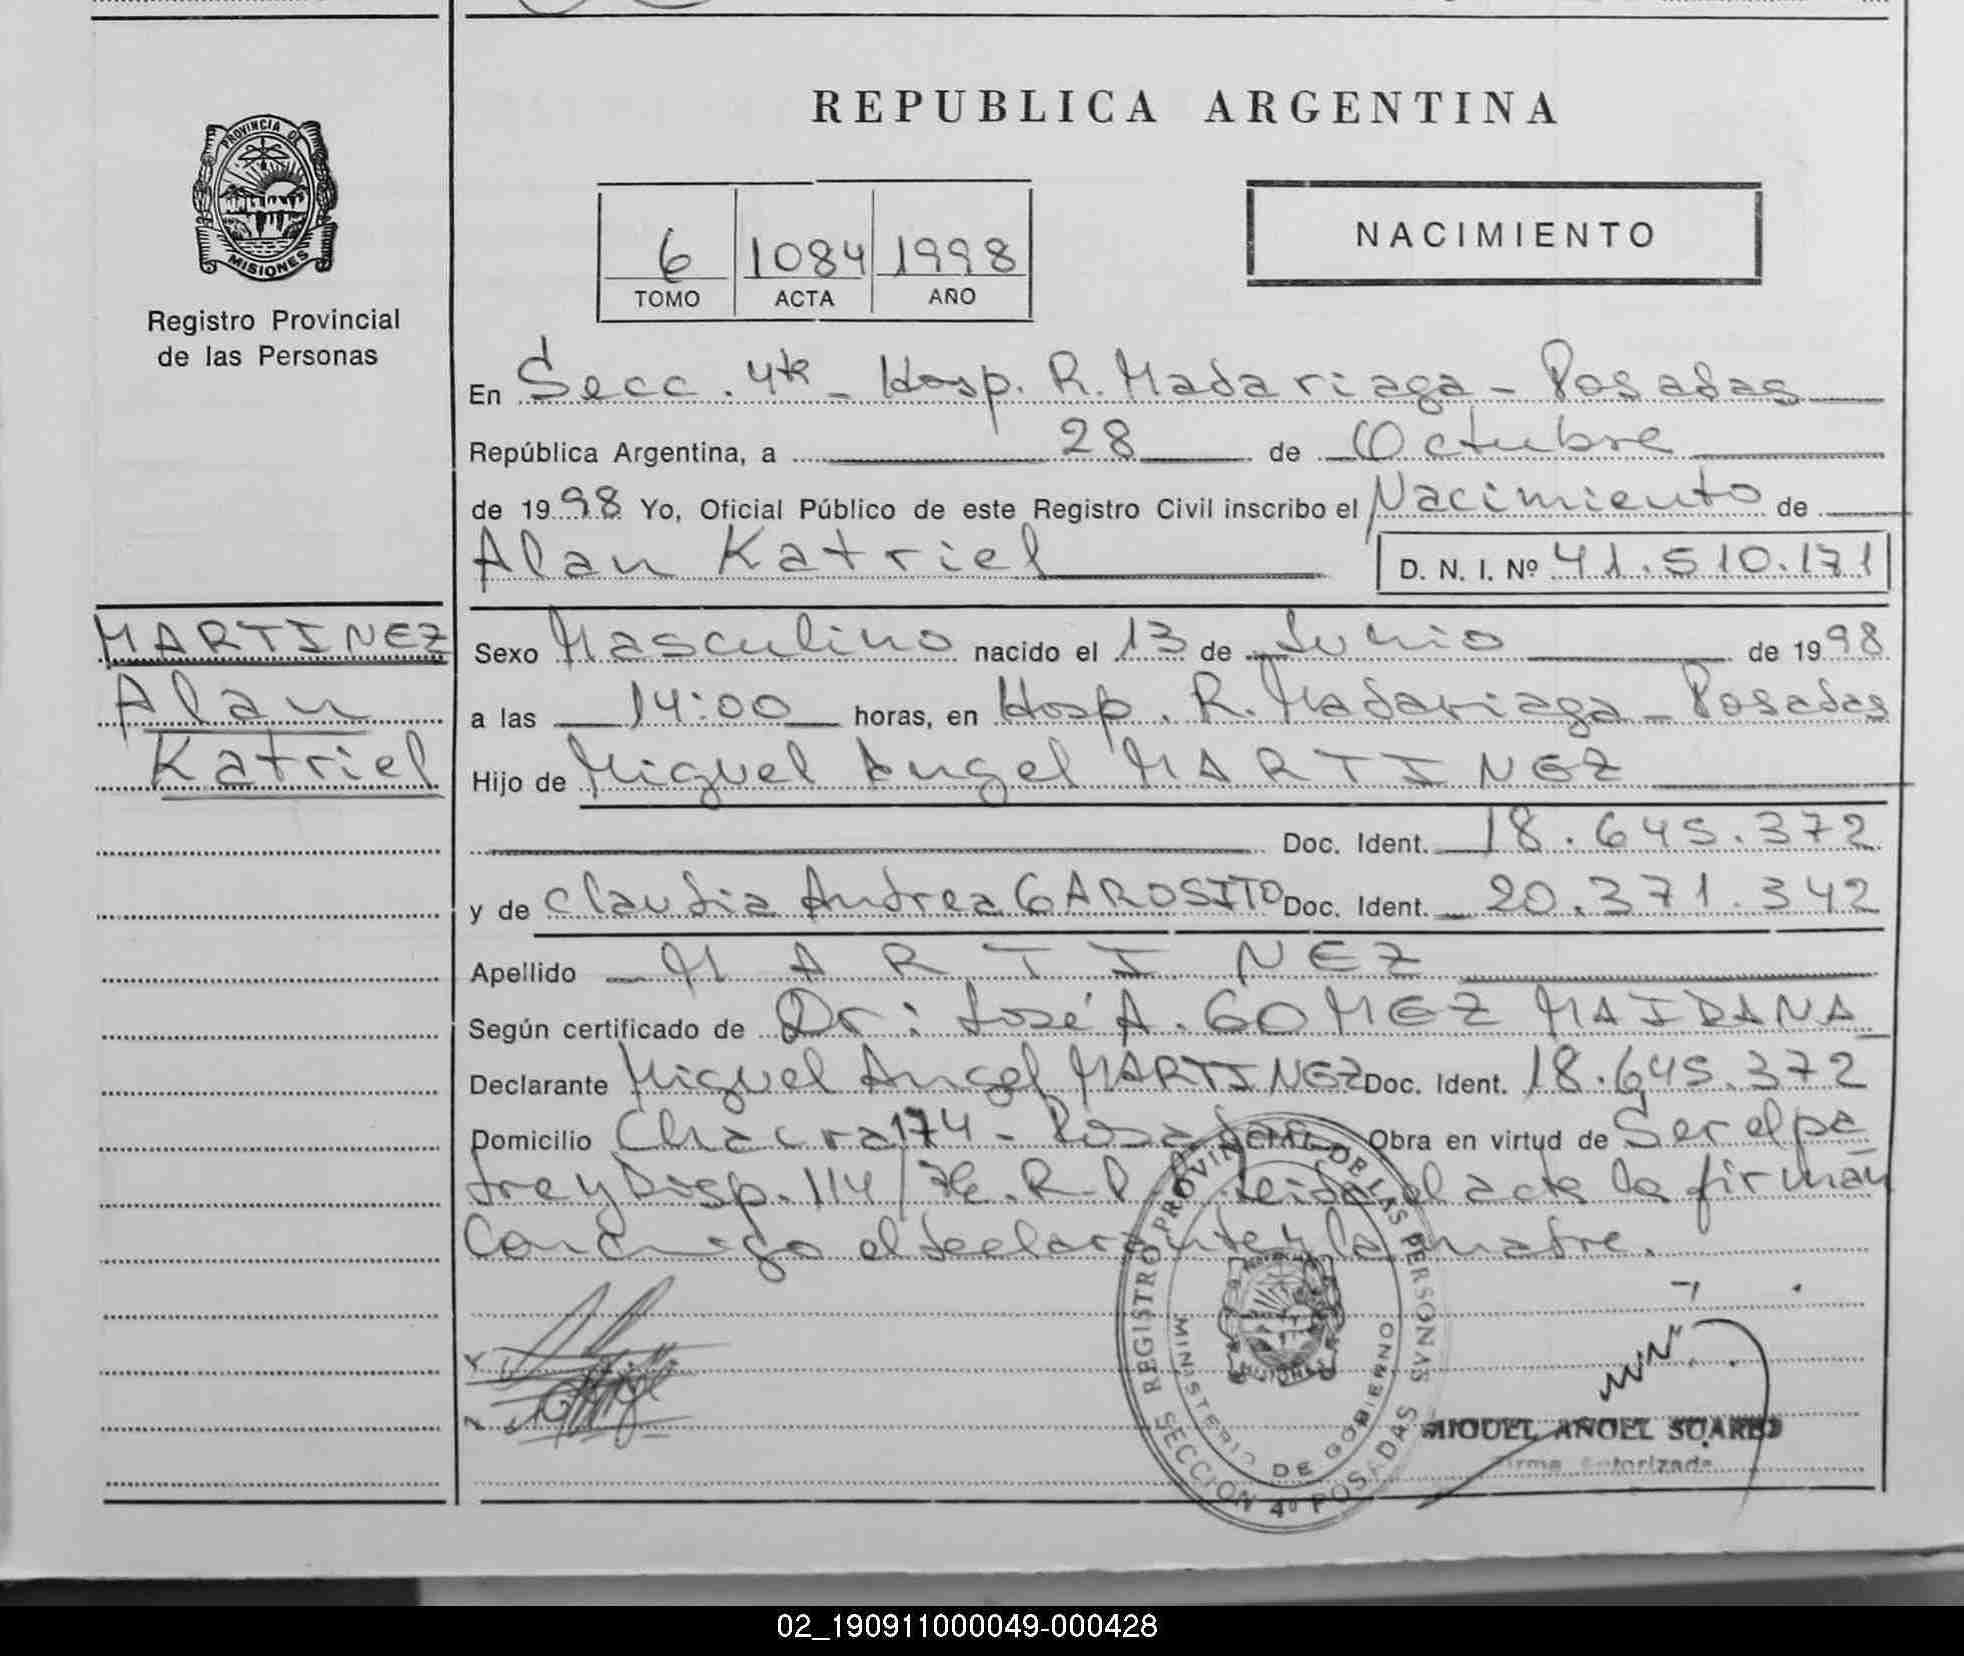 REPUBLICA ARGENTINA
PROVINCIA DE
MISIONES
Registro Provincial
de las Personas
6 1084 1998
TOMO ACTA AÑO
NACIMIENTO
En Secc. 4ta - Hosp. R. Madariaga - Posadas
República Argentina, a 28 de Octubre
de 1998 Yo, Oficial Público de este Registro Civil inscribo el Nacimiento de
Alan Katriel D. N. I. Nº 41.510.171
MARTINEZ
Alan
Katriel
Sexo Masculino nacido el 13 de Junio de 1998
a las 14:00 horas, en Hosp. R. Madariaga - Posadas
Hijo de Miguel Angel MARTINEZ
Doc. Ident. 18.645.372
y de Claudia Andrea GAROSITO Doc. Ident. 20.371.342
Apellido MARTINEZ
Según certificado de Dr: José A. GOMEZ MAIDANA
Declarante Miguel Angel MARTINEZ Doc. Ident. 18.645.372
Domicilio Chacra 174 - Posadas Obra en virtud de Ser el pa
dre y Disp. 114/ R.P. Leida el acta la firman
Conmigo el declarante y la madre.
REGISTRO PROVINCIAL DE LAS PERSONAS
MINISTERIO DE GOBIERNO
SECCION 4º POSADAS
MIGUEL ANGEL SUAREZ
Firma Autorizada
02_190911000049-000428